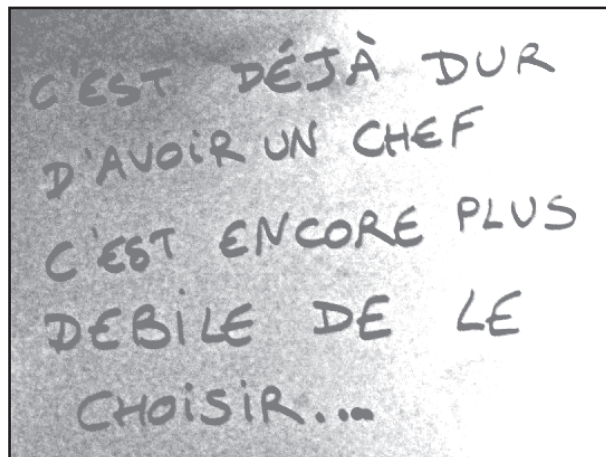 C'EST DÉJÀ DUR
D'AVOIR UN CHEF
C'EST ENCORE PLUS
DEBILE DE LE
CHOISIR...